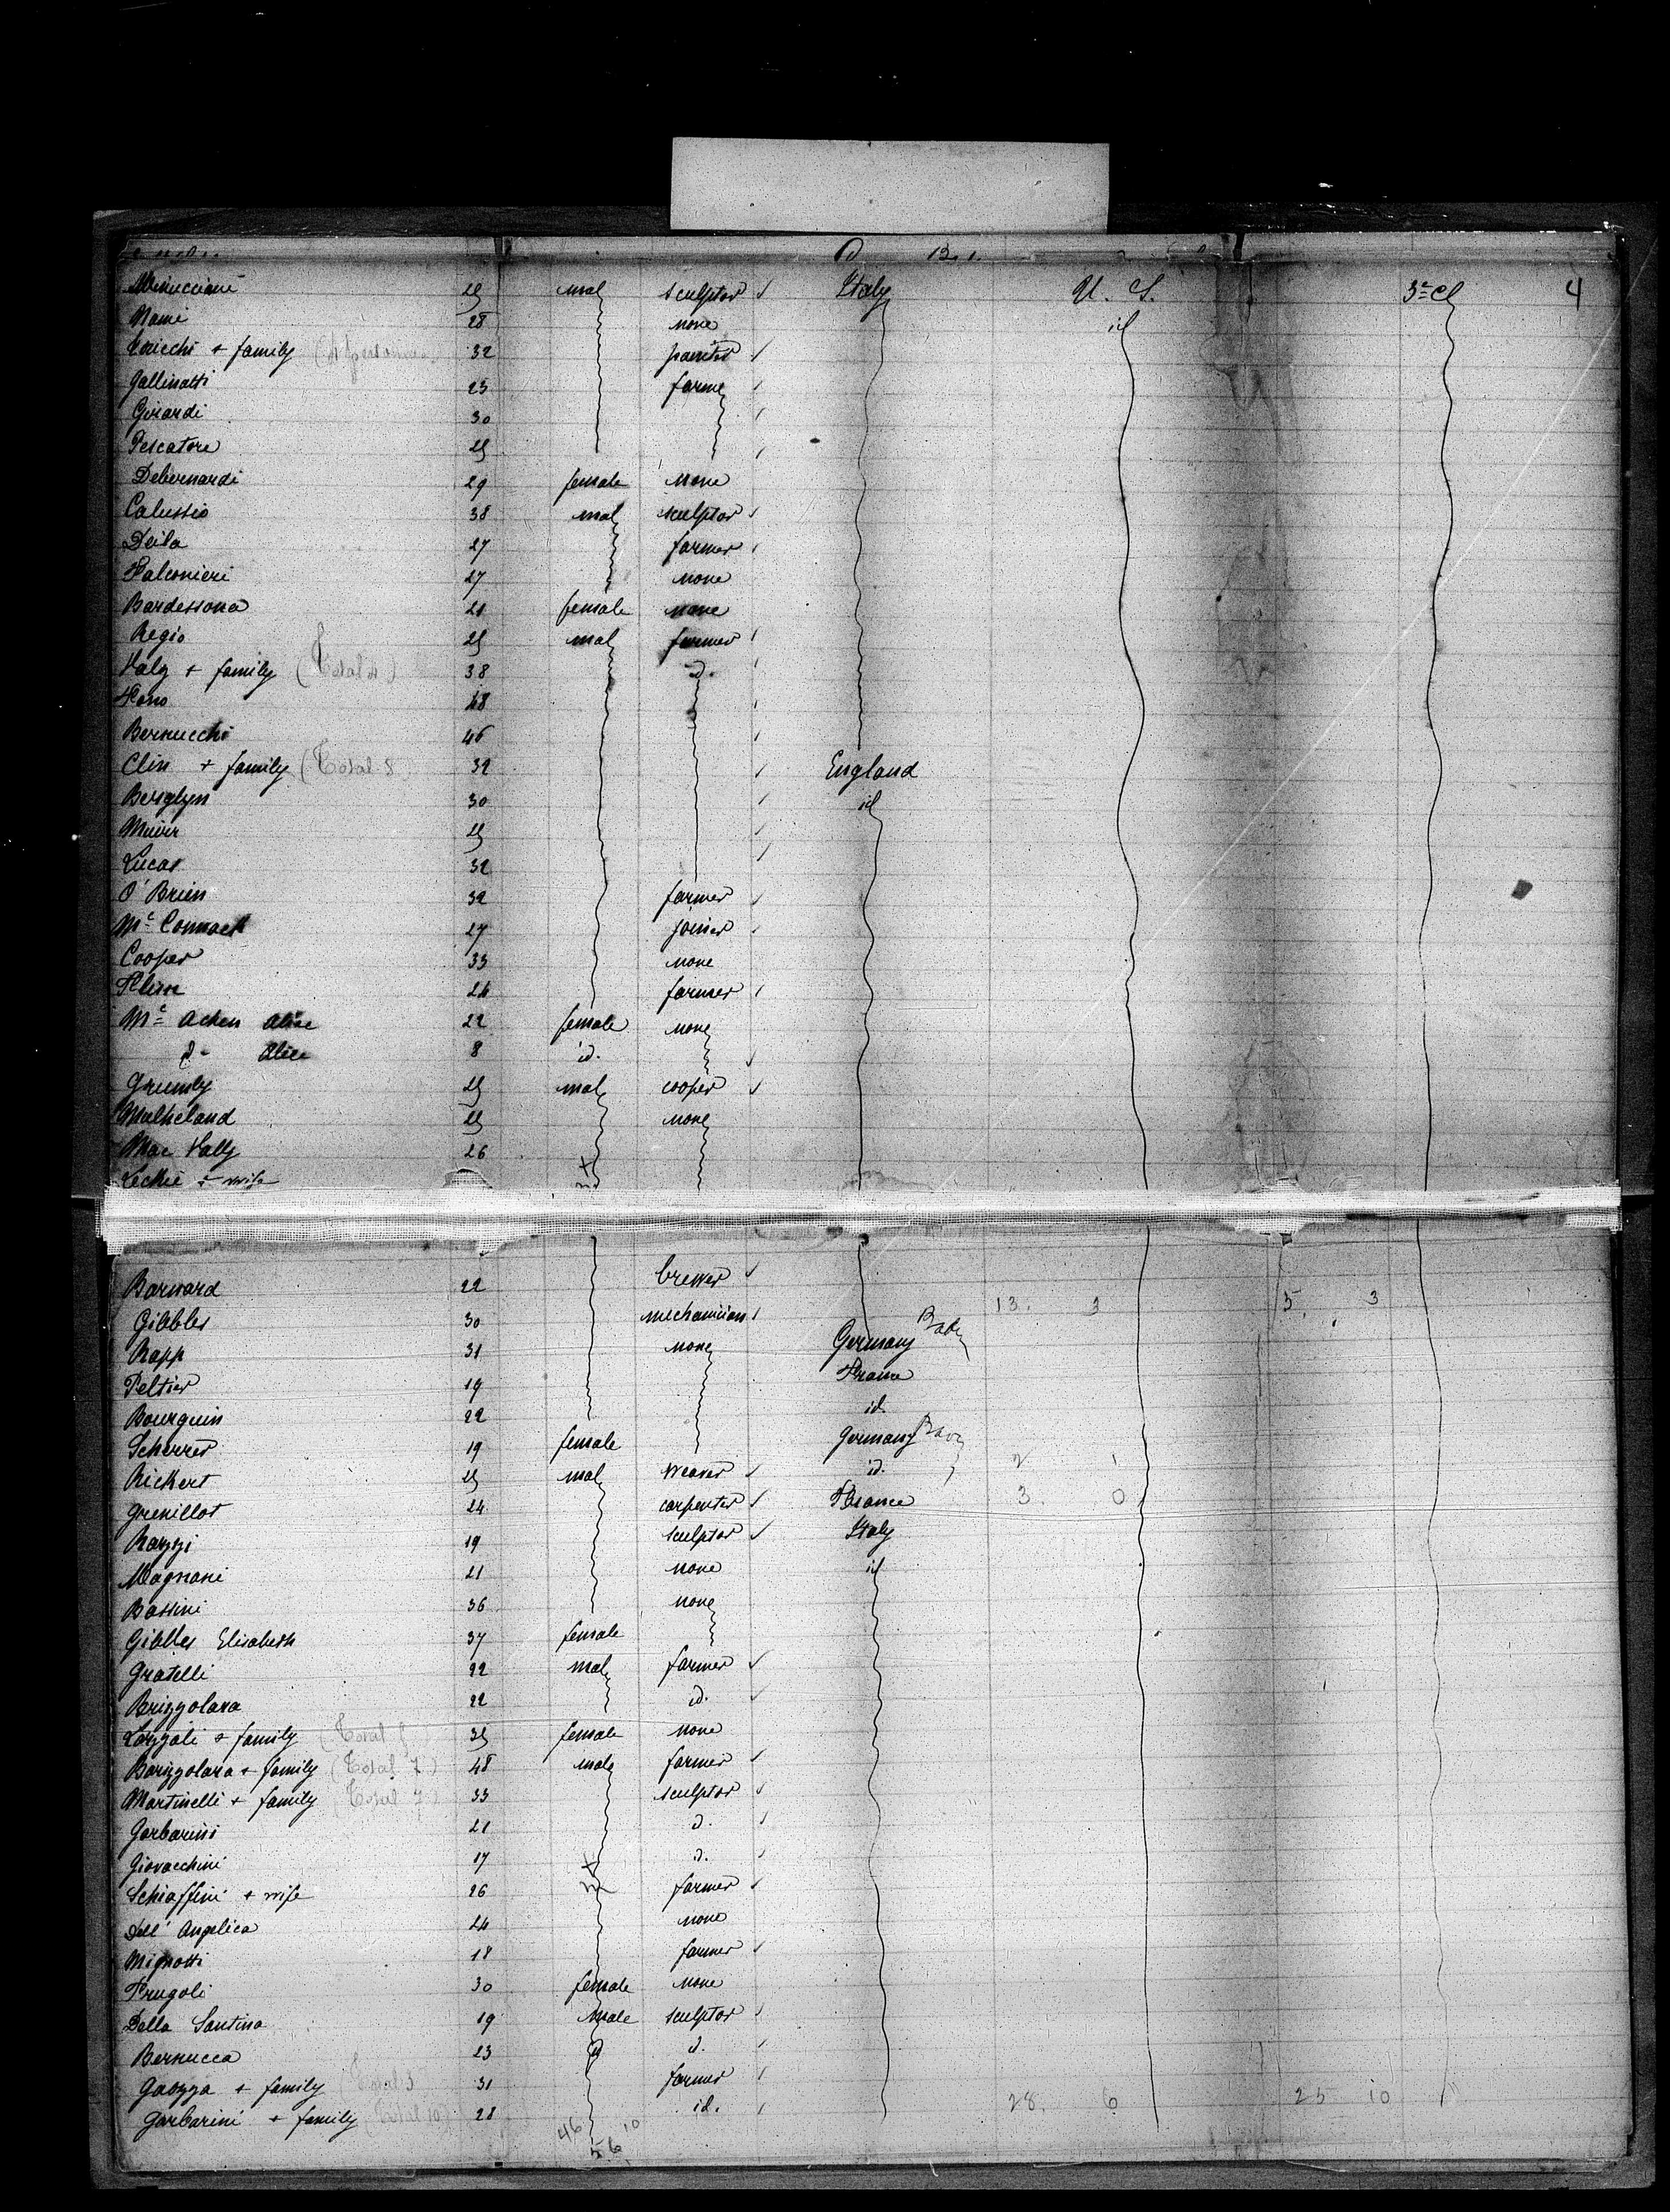 Minucciani 25 mal sculptor Italy U. S. 3e Cl 4
Nami 28 none id
+ family 32 painter
Gallinatti 23 farme
Girardi 30
Pescatore 25
Debernardi 29 female none
Calussio 38 mal sculptor
Deila 27 farmer
Falconieri 27 none
Bardessona 21 female none
Regio 25 mal farmer
Haly + family (Total 4) 38 d.
48
Bernucchi 46
Clin + family (Total 8) 32 England
Berglyn 30 id
Muir 25
Lucas 32
O'Brien 32 farmer
Mc Connack 27 joiner
Cooper 33 none
24 farmer
Mc Acken Alice 22 female none
d- Alice 8 id.
Grumly 25 mal cooper
Mulheland 25 none
Mac Hally 26
Leckie + wife
Barnard 22 brewer
Gibbles 30 mechanician 13. 3 5. 3
Rapp 31 none Germany
Peltier 19 France
Bourquin 22 id.
Scherrer 19 female Germany
Rickert 25 mal weaver id. 2 1
Grenillot 24 carpenter France 3. 0
Razzi 19 sculptor Italy
Magnani 21 none id
Bassini 36 none
Gibbles Elisabeth 37 female
Gratelli 22 mal farmer
Brizzolara 22 id.
Lazzali + family 35 female none
Barizzolara + family (Total 7) 48 male farmer
Martinelli + family (Total 7) 33 sculptor
Garbarini 21 d.
Giovacchini 17 d.
Schiaffini + wife 26 farmer
Dell' Angelica 24 none
Mignotti 18 farmer
Frugoli 30 female none
Della Santina 19 male sculptor
Bernucca 23 d d.
Gaozza + family (Total 3 31 farmer
Garbarini + family (Total 10) 28 id. 28. 6 25 10
46 10
56